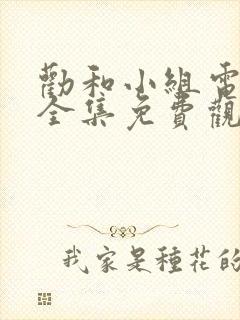 勸和小組電
全集免費觀
我家是種花的